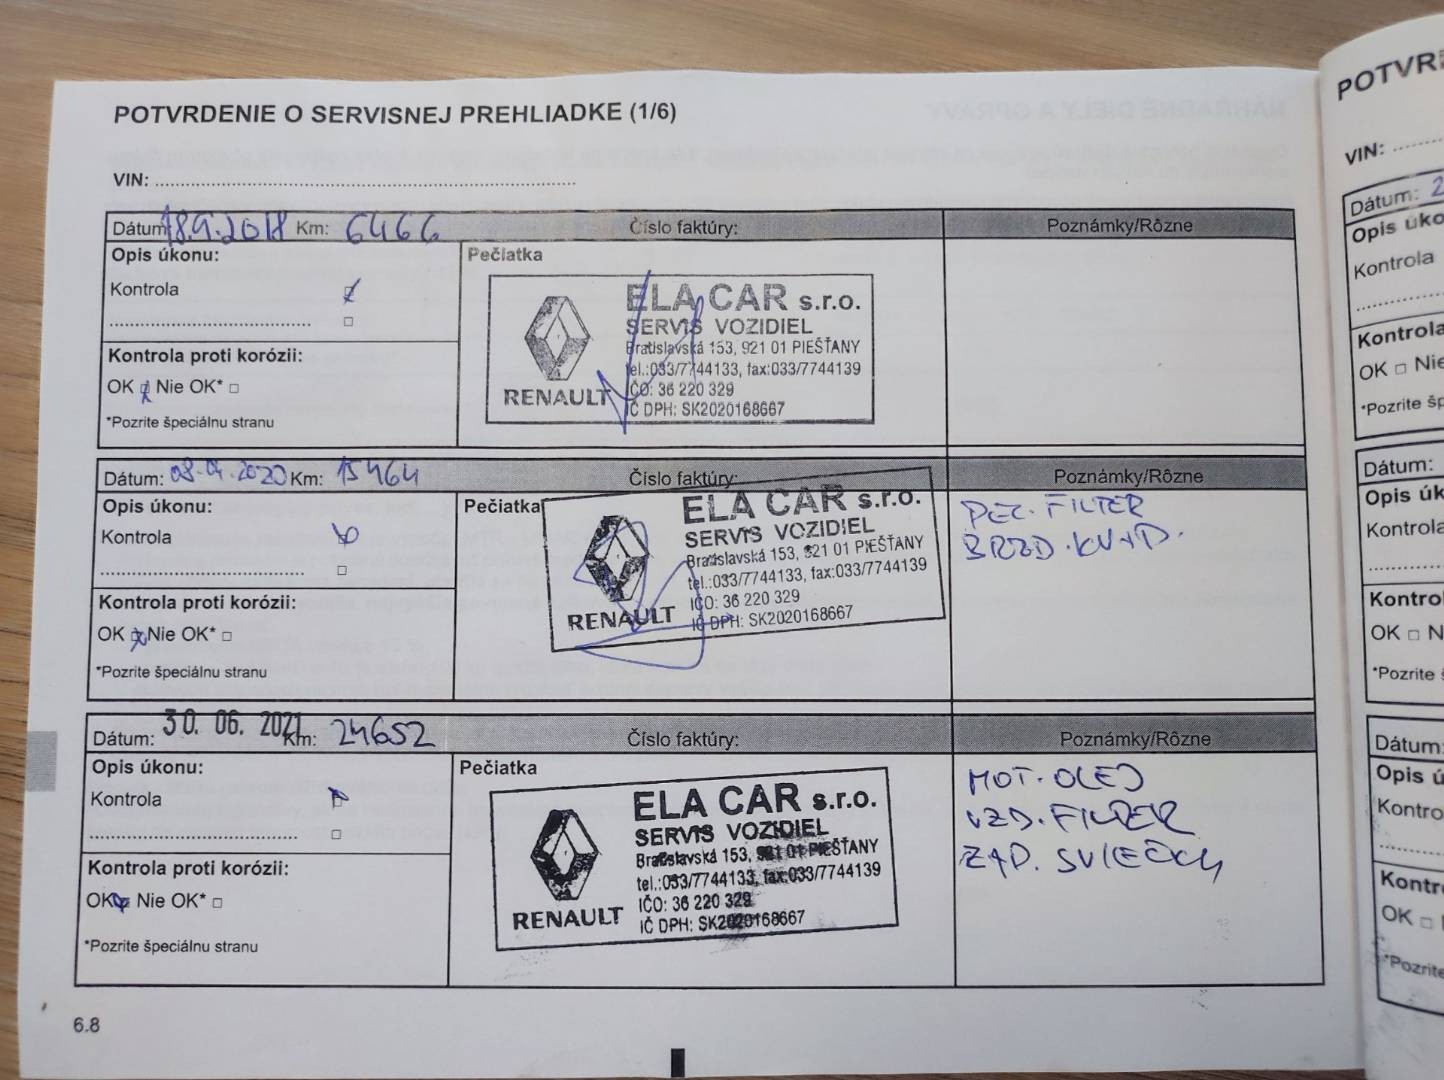 POTVRDENIE O SERVISNEJ PREHLIADKE (1/6)
VIN:
Dátum: 18.9.2018 Km: 6466 Číslo faktúry: Poznámky/Rôzne
Opis úkonu:
Kontrola
Kontrola proti korózii:
OK Nie OK*
*Pozrite špeciálnu stranu
Pečiatka
ELA CAR s.r.o.
SERVIS VOZIDIEL
Bratislavská 153, 921 01 PIEŠŤANY
tel.:033/7744133, fax:033/7744139
IČO: 36 220 329
IČ DPH: SK2020168667
RENAULT
Dátum: 08.04.2020 Km: 15464 Číslo faktúry: Poznámky/Rôzne
Opis úkonu:
Kontrola
Kontrola proti korózii:
OK Nie OK*
*Pozrite špeciálnu stranu
Pečiatka
ELA CAR s.r.o.
SERVIS VOZIDIEL
Bratislavská 153, 921 01 PIEŠŤANY
tel.:033/7744133, fax:033/7744139
IČO: 36 220 329
IČ DPH: SK2020168667
RENAULT
PEĽ. FILTER
BRZD. KVAP.
Dátum: 30. 06. 2021 Km: 24652 Číslo faktúry: Poznámky/Rôzne
Opis úkonu:
Kontrola
Kontrola proti korózii:
OK Nie OK*
*Pozrite špeciálnu stranu
Pečiatka
ELA CAR s.r.o.
SERVIS VOZIDIEL
Bratislavská 153, 921 01 PIEŠŤANY
tel.:033/7744133, fax:033/7744139
IČO: 36 220 329
IČ DPH: SK2020168667
RENAULT
MOT. OLEJ
VZD. FILTER
ZAP. SVIEČKY
6.8
VIN:
Dátum: 2
Opis
Kontrola
Kontrola
OK Nie
*Pozrite
Dátum:
Opis
Kontrola
OK
*Pozrite
Dátum:
Opis
OK
*Pozrite